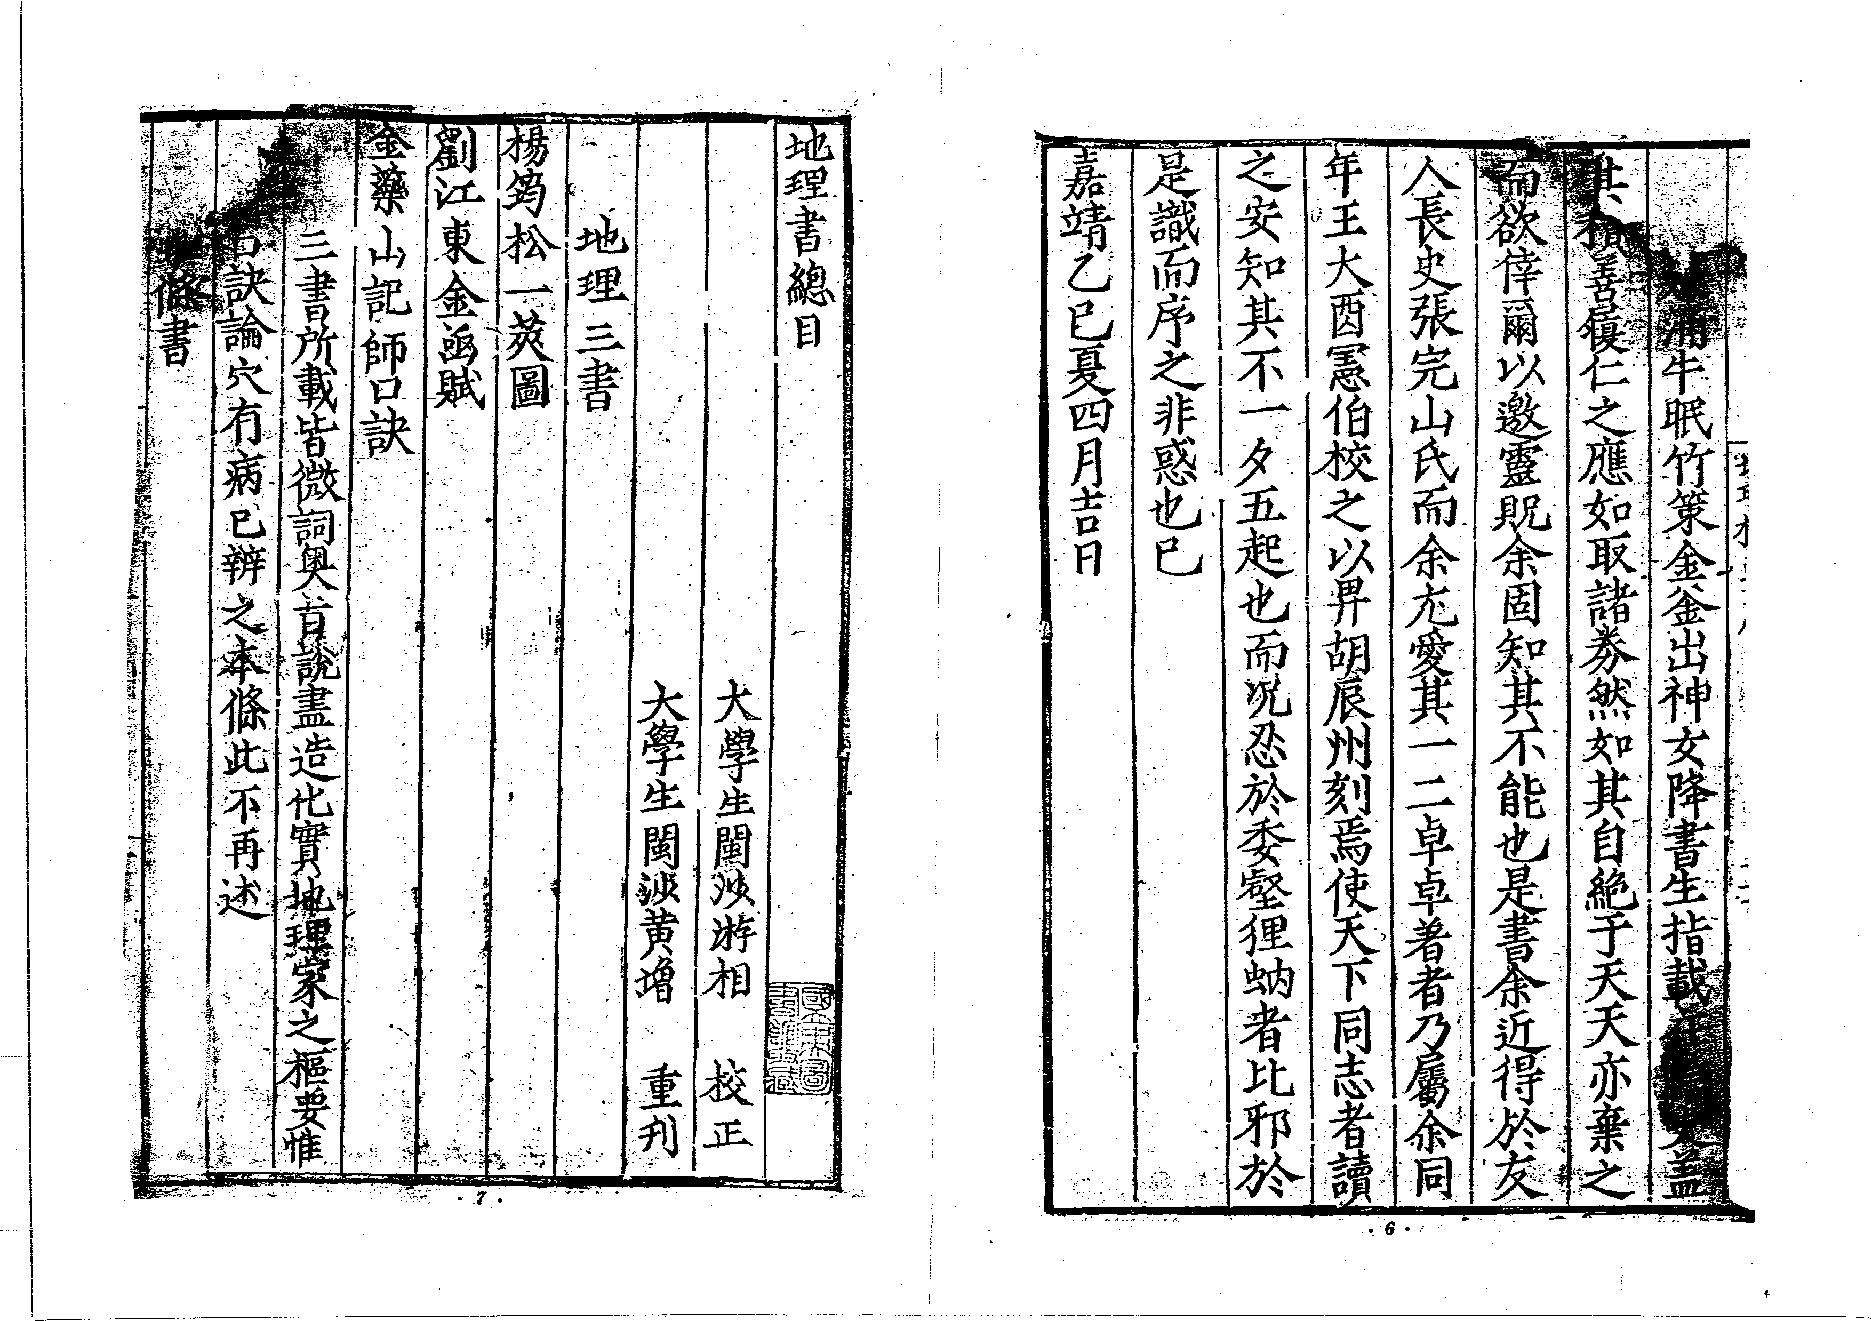 浦牛眠竹策金釜出神女降書生指載
其 善履仁之應如取諸券然如其自絶于天天亦棄之
而欲倖爾以邀靈貺余固知其不能也是書余近得於友
人長史張完山氏而余尢愛其一二卓卓著者乃屬余同
年王大酉憲伯校之以畀胡辰州刻焉使天下同志者讀
之安知其不一夕五起也而况忍於委壑狸蚋者比邪於
是識而序之非惑也已
嘉靖乙巳夏四月吉日
6
地理書總目
大學生閩沙游相 校正
大學生閩沙黄增 重刊
地理三書
楊筠松一莢圖
劉江東金函賦
金藥山記師口訣
三書所載皆微詞奥旨說盡造化實地理家之樞要惟
口訣論穴有病已辯之本條此不再述
條書
7